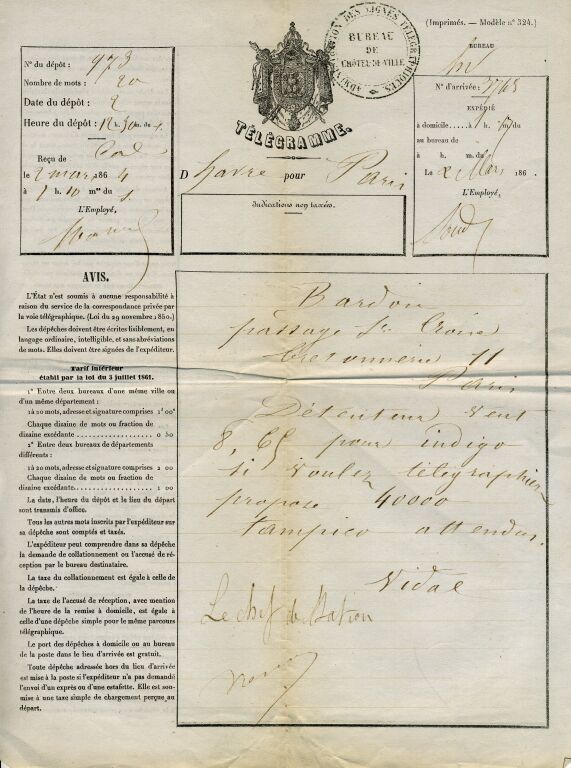 (Imprimés. — Modèle n° 324.)
ADMINISTRATION DES LIGNES TÉLÉGRAPHIQUES
BUREAU
DE
L'HÔTEL-DE-VILLE
TÉLÉGRAMME.
N° du dépôt: 973
Nombre de mots: 20
Date du dépôt: 2
Heure du dépôt: 12 h. 30 m. du s.
Reçu de
le 2 mars 1864
à 1 h. 10 m du s
L'Employé,
D Havre pour Paris
Indications non taxées.
BUREAU
N° d'arrivée:
EXPÉDIÉ
à domicile.....à h. du
au bureau de
à h. m. du
Le 2 Mars 186
L'Employé,
AVIS.
L'État n'est soumis à aucune responsabilité à
raison du service de la correspondance privée par
la voie télégraphique. (Loi du 29 novembre 1850.)
Les dépêches doivent être écrites lisiblement, en
langage ordinaire, intelligible, et sans abréviations
de mots. Elles doivent être signées de l'expéditeur.
Tarif intérieur
établi par la loi du 3 juillet 1861.
1° Entre deux bureaux d'une même ville ou
d'un même département:
1 à 20 mots, adresse et signature comprises 1f 00c
Chaque dizaine de mots ou fraction de
dizaine excédante .................... 0 50
2° Entre deux bureaux de départements
différents:
1 à 20 mots, adresse et signature comprises 2 00
Chaque dizaine de mots ou fraction de
dizaine excédante .................... 1 00
La date, l'heure du dépôt et le lieu du départ
sont transmis d'office.
Tous les autres mots inscrits par l'expéditeur sur
sa dépêche sont comptés et taxés.
L'expéditeur peut comprendre dans sa dépêche
la demande de collationnement ou l'accusé de ré-
ception par le bureau destinataire.
La taxe du collationnement est égale à celle de
la dépêche.
La taxe de l'accusé de réception, avec mention
de l'heure de la remise à domicile, est égale à
celle d'une dépêche simple pour le même parcours
télégraphique.
Le port des dépêches à domicile ou au bureau
de la poste dans le lieu d'arrivée est gratuit.
Toute dépêche adressée hors du lieu d'arrivée
est mise à la poste si l'expéditeur n'a pas demandé
l'envoi d'un exprès ou d'une estafette. Elle est sou-
mise à une taxe simple de chargement perçue au
départ.
Bardou
passage Ste Croix
bretonnerie 11
Paris
Détenteur veut
8,65 pour indigo
si voulez télégraphier
propose 40000
tampico attendus.
Vidal
Le chef de Station